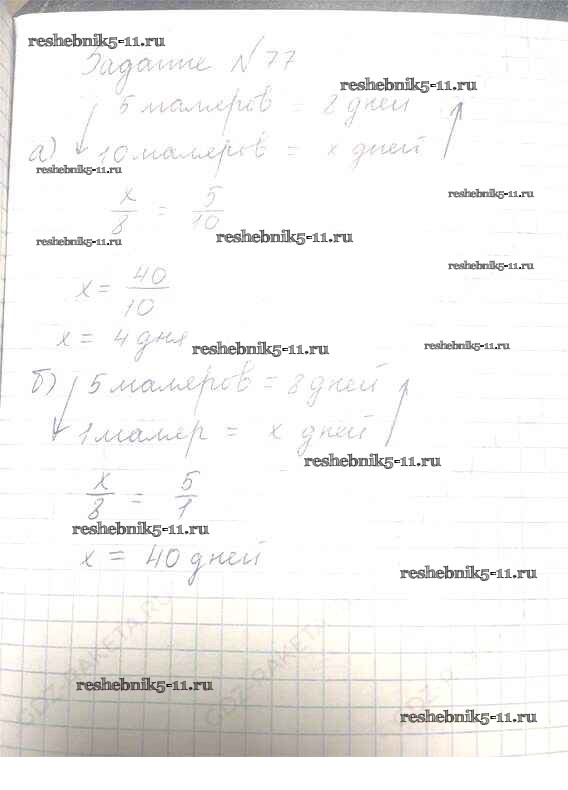 reshebnik5-11.ru
Задание №77
reshebnik5-11.ru
5 маляров = 8 дней
а) 10 маляров = x дней
reshebnik5-11.ru
reshebnik5-11.ru
x/8 = 5/10
reshebnik5-11.ru
reshebnik5-11.ru
reshebnik5-11.ru
x = 40/10
x = 4 дня
reshebnik5-11.ru
reshebnik5-11.ru
б) 5 маляров = 8 дней
1 маляр = x дней
reshebnik5-11.ru
x/8 = 5/1
reshebnik5-11.ru
x = 40 дней
reshebnik5-11.ru
GDZ-RAKETA.RU
reshebnik5-11.ru
reshebnik5-11.ru